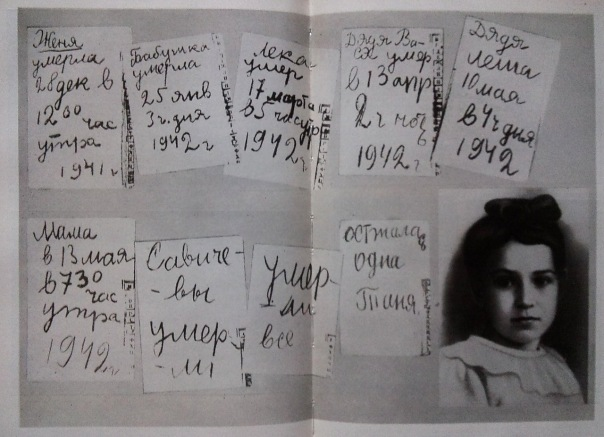 Женя
умерла
28 дек в
12 00 час
утра
1941 г
Бабушка
умерла
25 янв
3 ч. дня
1942 г
Лека
умер
17 марта
в 5 час утр
1942 г
Дядя Ва-
ся умер
в 13 апр
2 ч ноч
1942 г
Дядя
Леша
10 мая
в 4 ч дня
1942
Мама
в 13 мая
в 730
час
утра
1942 г
Савиче-
-вы
умер-
-ли
умер-
ли
все
осталась
одна
Таня